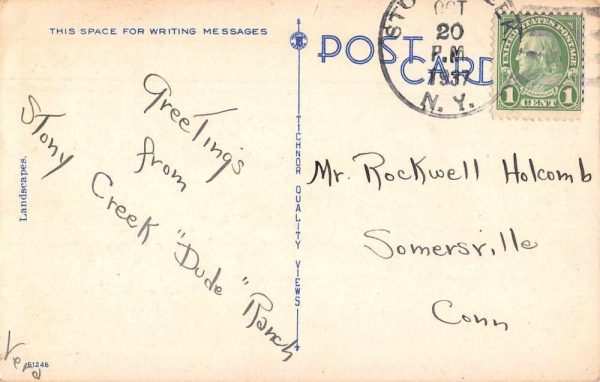 THIS SPACE FOR WRITING MESSAGES
POST CARD
OCT
20
P.M.
1937
N. Y.
UNITED STATES POSTAGE
FRANKLIN
1 CENT 1
Greetings
from
Stony Creek "Dude" Ranch
Vera
Landscapes.
61246
TICHNOR QUALITY VIEWS
Mr. Rockwell Holcomb
Somersville
Conn